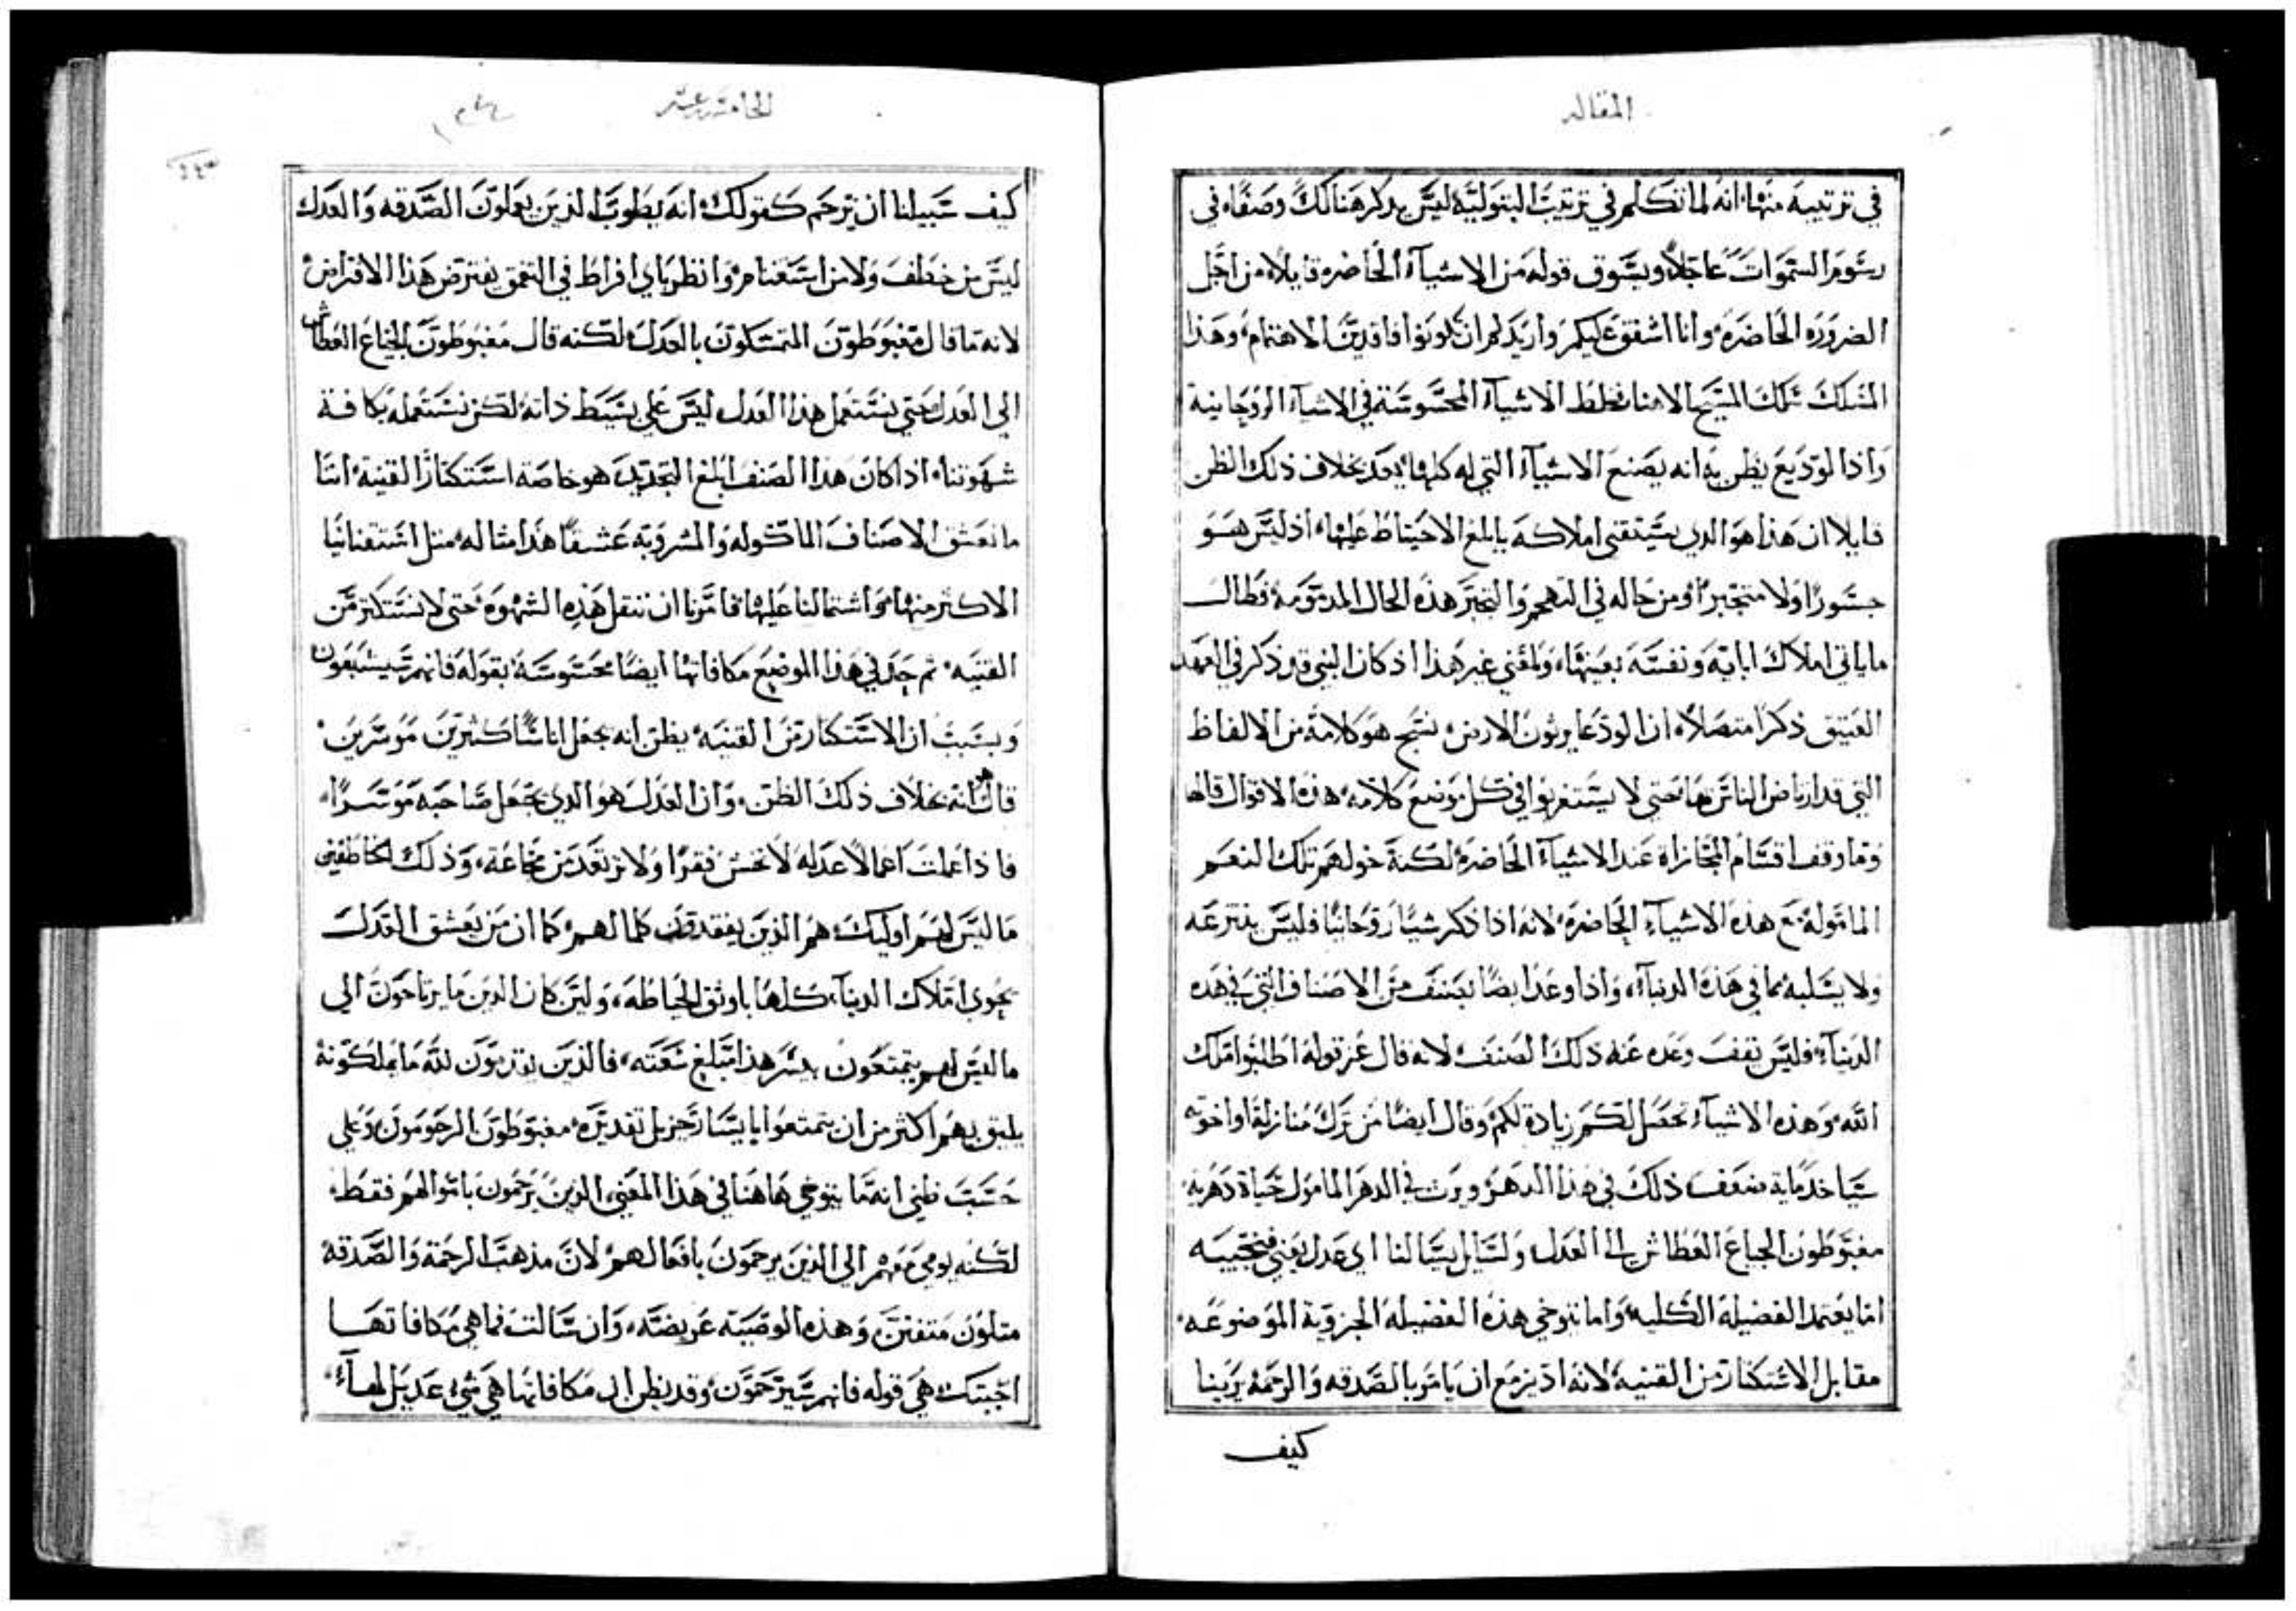 المقاله
في ترتيبه منها، انه لما تكلم في ترتيب البتوليه ليس يذكر هنالك وصفا، في
رسوم السموات عاجلا، ويسوق قوله من الاشيآء الحاضره قايلا، من اجل
الضروره الحاضره، وانا اشفق عليكم واريد لكم ان تكونوا فاقدين الاهتمام، وهذا
المسلك سلك المسيح الاهنا فخلط الاشيآء المحسوسة في الاشيآء الروحانية
واذا لوديع يظن به انه يضيع الاشيآء التي له كلها، يعد بخلاف ذلك الظن
قايلا ان هذا هو الدي سيقتني املاكه بابلغ الاحتياط عليها، اذ ليس هو
جسورا ولا متجبرا، ومن حاله في التهجم والتجبر هذه الحال المدمومة، فطال
ماياتي املاك ابايه ونفسه بعينها، ولمعني غير هذا اذ كان النبي قد ذكر في العهد
العتيق ذكرا متصلا، ان الودعا يرثون الارض، نسج هو كلامه من الالفاظ
التي قد ارتاض الناس بها، حتي لا يستغربوا في كل موضع كلامه، هذه الاقوال قالها
وما وقف اقسام المجازاه عند الاشيآء الحاضره، لكنه خولهم تلك النعم
الماموله مع هذه الاشيآء الحاضره، لانه اذا ذكر شيا روحانيا فليس ينترعه
ولا يسلبه مما في هذه الدنيآء، واذا وعد ايضا بصنف من الاصناف التي في هذه
الدنيآء، فليس تقف وعده عند ذلك الصنف، لانه قال عز قوله اطلبوا ملك
الله، وهذه الاشيآء تحصل لكم زيادة لكم، وقال ايضا من ترك منازله، او اخوته
سياخد ماية ضعف ذلك في هذا الدهر، ويرث في الدهر المامول حياة دهريه،
مغبوطون الجياع العطاش الي العدل ولسايل يسالنا اي عدل يعني فنجيبه
اما يعتمد الفضيلة الكليه، واما يتوخي هذه الفضيله الجزوية الموضوعه،
مقابل الاستكثار من القنيه، لانه اذ يزمع ان يامر بالصدقه والرحمه يرينا
كيف
الخامسه عشر
كيف سبيلنا ان نرحم كقولك، انه يطوب الذين يعملون الصدقه والعدل
ليس من خطف ولا من استغنام، وانظر باي افراط في التعمق يفترض هذا الافتراض،
لانه ما قال مغبوطون المتمسكون بالعدل، لكنه قال مغبوطون الجياع العطاش
الي العدل، حتي نستعمل هذا العدل ليس علي بسيط ذاته، لكن نستعمله بكافة
شهوتنا، اذا كان هذا الصنف ابلغ التحديد هو خاصة استكثار القنية، اننا
ما نعشق الاصناف الماكوله والمشروبه عشقا هذا مثاله، مثل اشتقنا نيا
الاكثر منها، واشتمالنا عليها، فامرنا ان ننقل هذه الشهوه، حتي لا نستكثر من
القنيه، ثم جدل في هذا الموضع مكافاتها ايضا محسوسة، بقوله فانهم سيشبعون
وبسبب ان الاستكثار من القنيه، يظن انه يجعل اناسا كثيرين موسرين،
قال انه بخلاف ذلك الظن، وان العدل هو الذي يجعل صاحبه موسرا،
فاذا عملت اعمالا عدليه لا تخش فقرا ولا ترتعد من مجاعة، وذلك الخاطفين
ما ليس لهم اوليك، هم الذين يفقدون كلما لهم، كما ان من يعشق العدل
يحوي املاك الدنيآء كلها باوثق الحياطه، وليس كان الدين ما يرتاحون الي
ما ليس لهم يتمتعون بيسر هذا مبلغ سعته، فالذين يقربون لله ما يملكونه
يليق بهم اكثر من ان يتمتعوا بايسار جزيل تقديره، مغبوطون الرحومون، وعلي
حسب ظني انه ما يتوخي هاهنا في هذا المعني، الذين يرحمون باموالهم فقط،
لكنه يومي معهم الي الذين يرحمون بافعالهم، لان مذهب الرحمة والصدقة
متلون متفنن، وهذه الوصيه عريضه، وان سالت فما هي مكافاتها
اجبتك هي قوله فانهم سيرحمون، وقد يظن ان مكافاتها هي شي عديل لها،